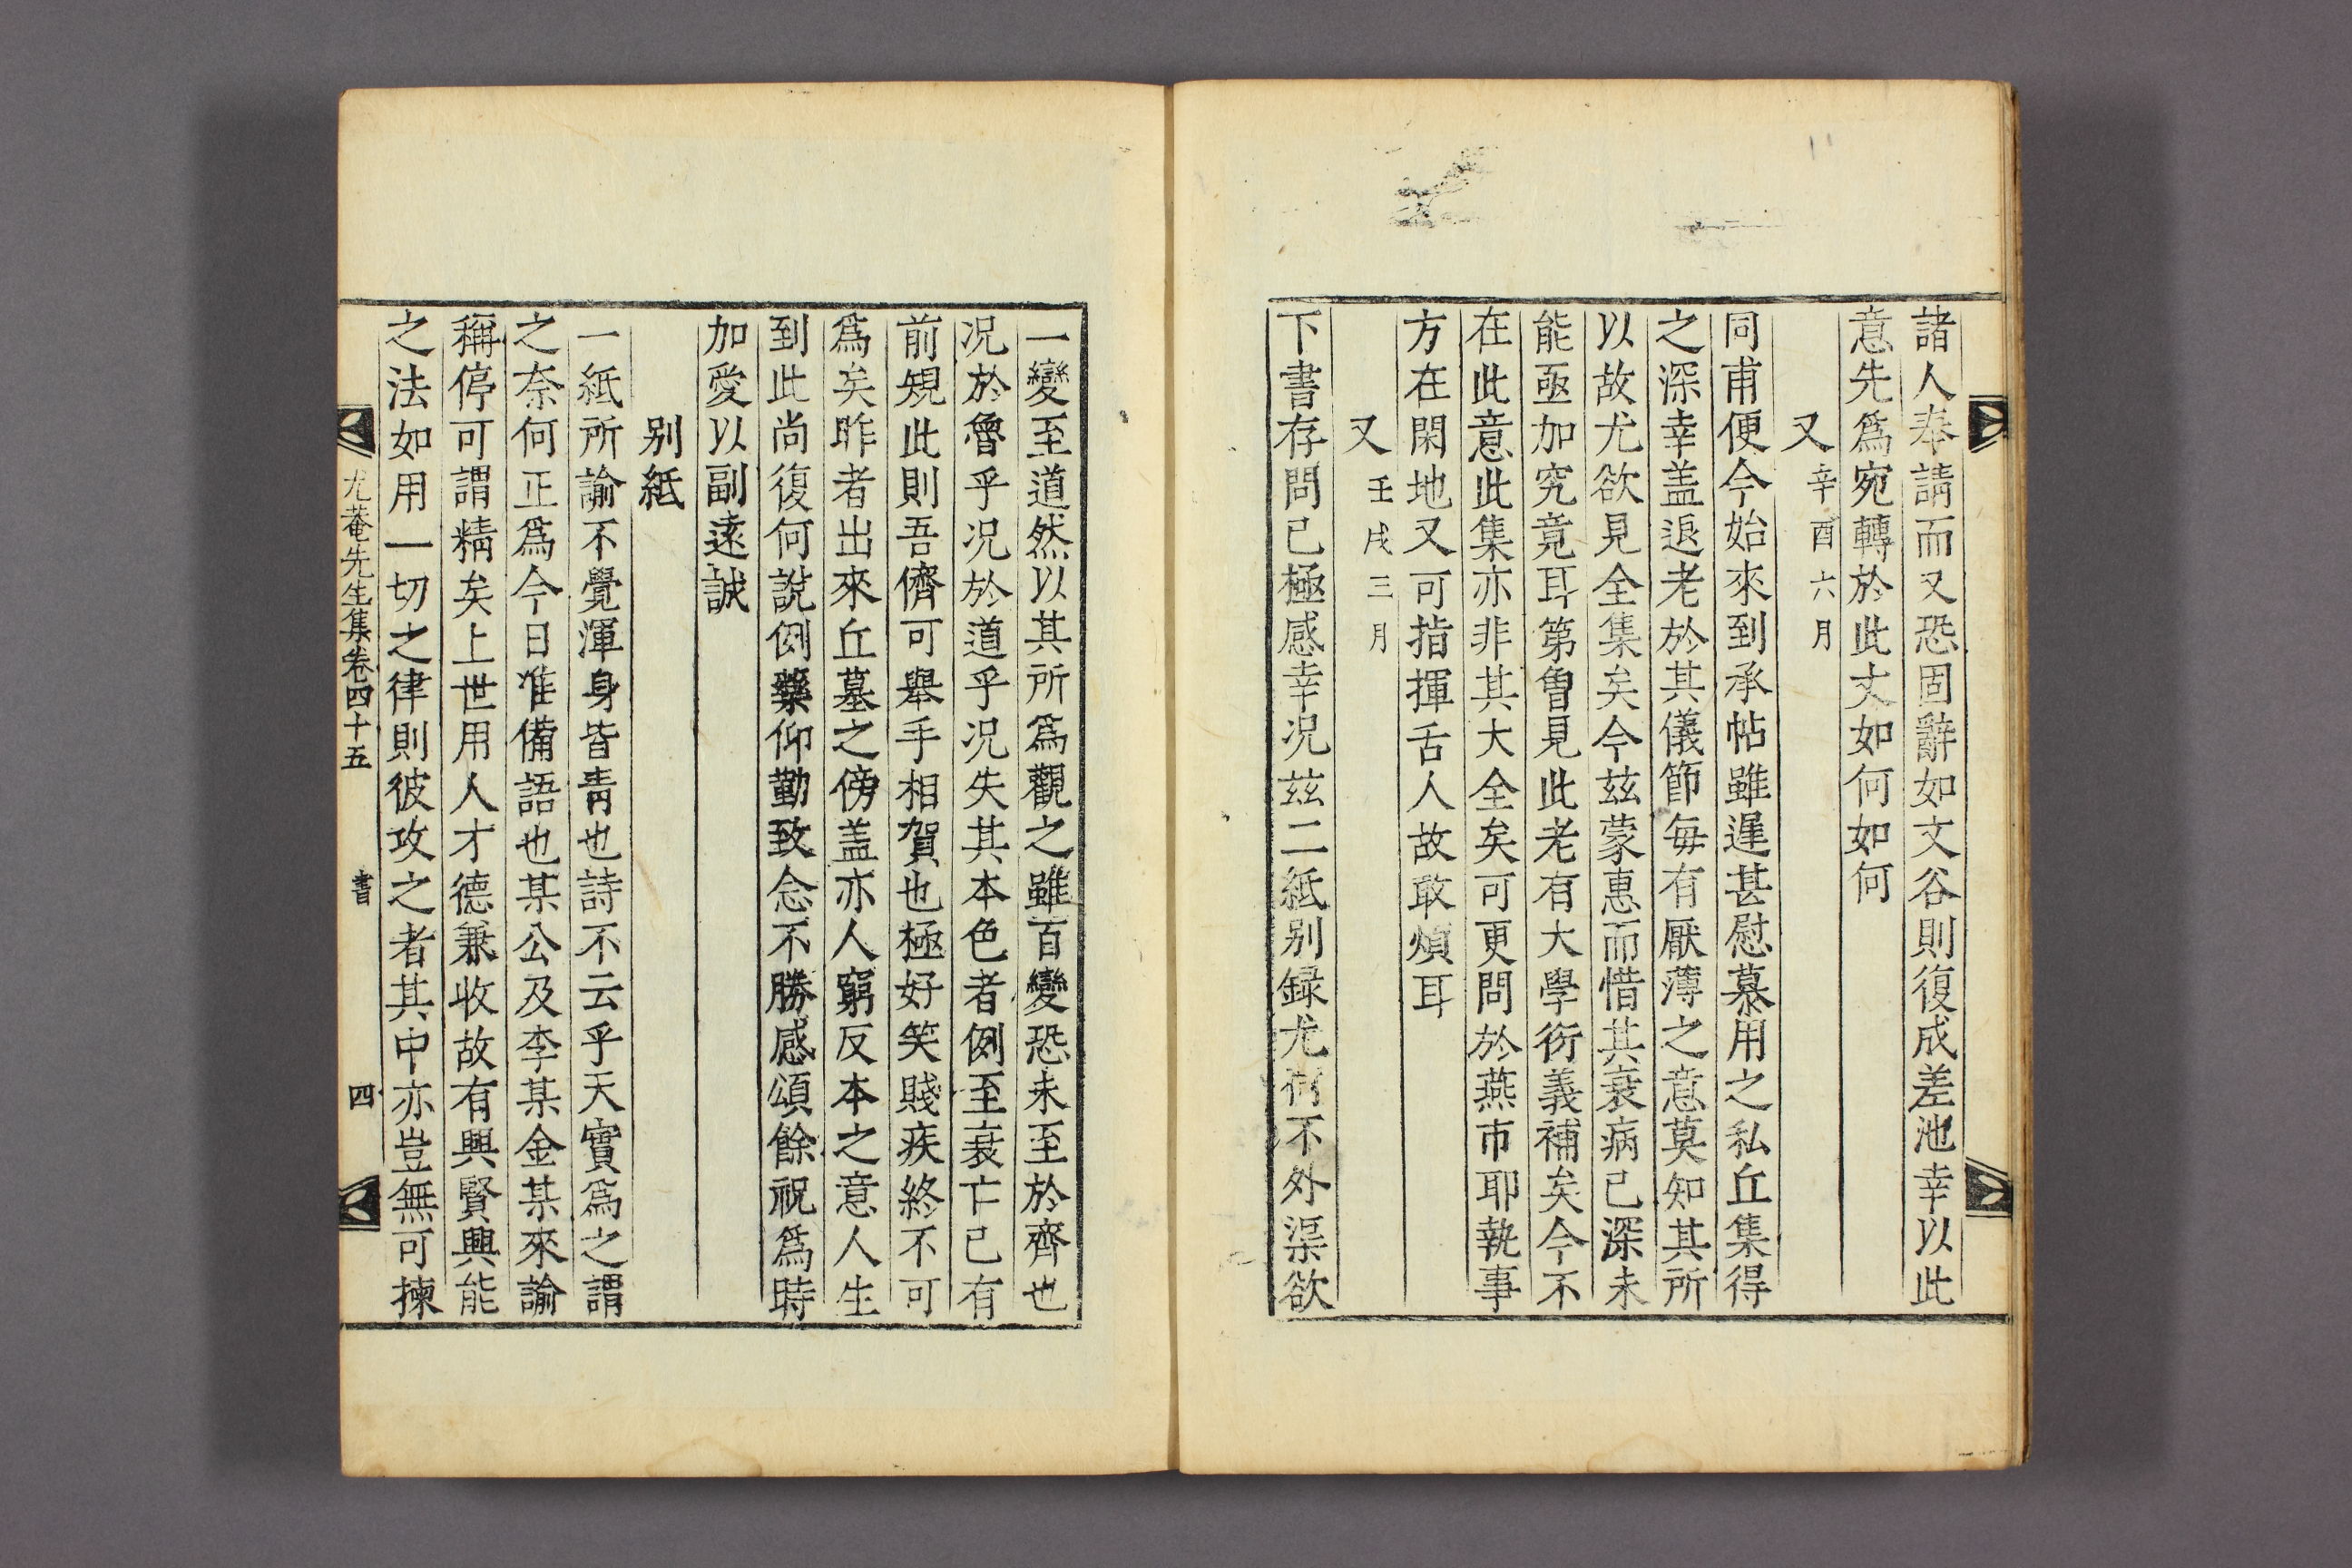 諸人奉請而又恐固辭如文谷則復成差池幸以此
意先爲宛轉於此丈如何如何
又 辛酉六月
同甫便今始來到承帖雖遅甚慰慕用之私丘集得
之深幸盖退老於其儀節毎有厭薄之意莫知其所
以故尤欲見全集矣今玆蒙惠而惜其衰病已深未
能亟加究竟耳第曾見此老有大學衍義補矣今不
在此意此集亦非其大全矣可更問於燕市耶執事
方在閑地又可指揮舌人故敢煩耳
又 壬戌三月
下書存問已極感幸况玆二紙别録尤荷不外渠欲
一變至道然以其所爲觀之雖百變恐未至於齊也
况於魯乎况於道乎况失其本色者例至衰亡已有
前䂓此則吾儕可舉手相賀也極好笑賤疾終不可
爲矣昨者出來丘墓之傍盖亦人窮反本之意人生
到此尚復何說例藥仰勤致念不勝感頌餘祝爲時
加愛以副遠誠
别紙
一紙所諭不覺渾身皆靑也詩不云乎天實爲之謂
之奈何正爲今日准備語也某公及李某金某來諭
稱停可謂精矣上世用人才德兼收故有興賢興能
之法如用一切之律則彼攻之者其中亦豈無可揀
尤菴先生集卷四十五 書 四